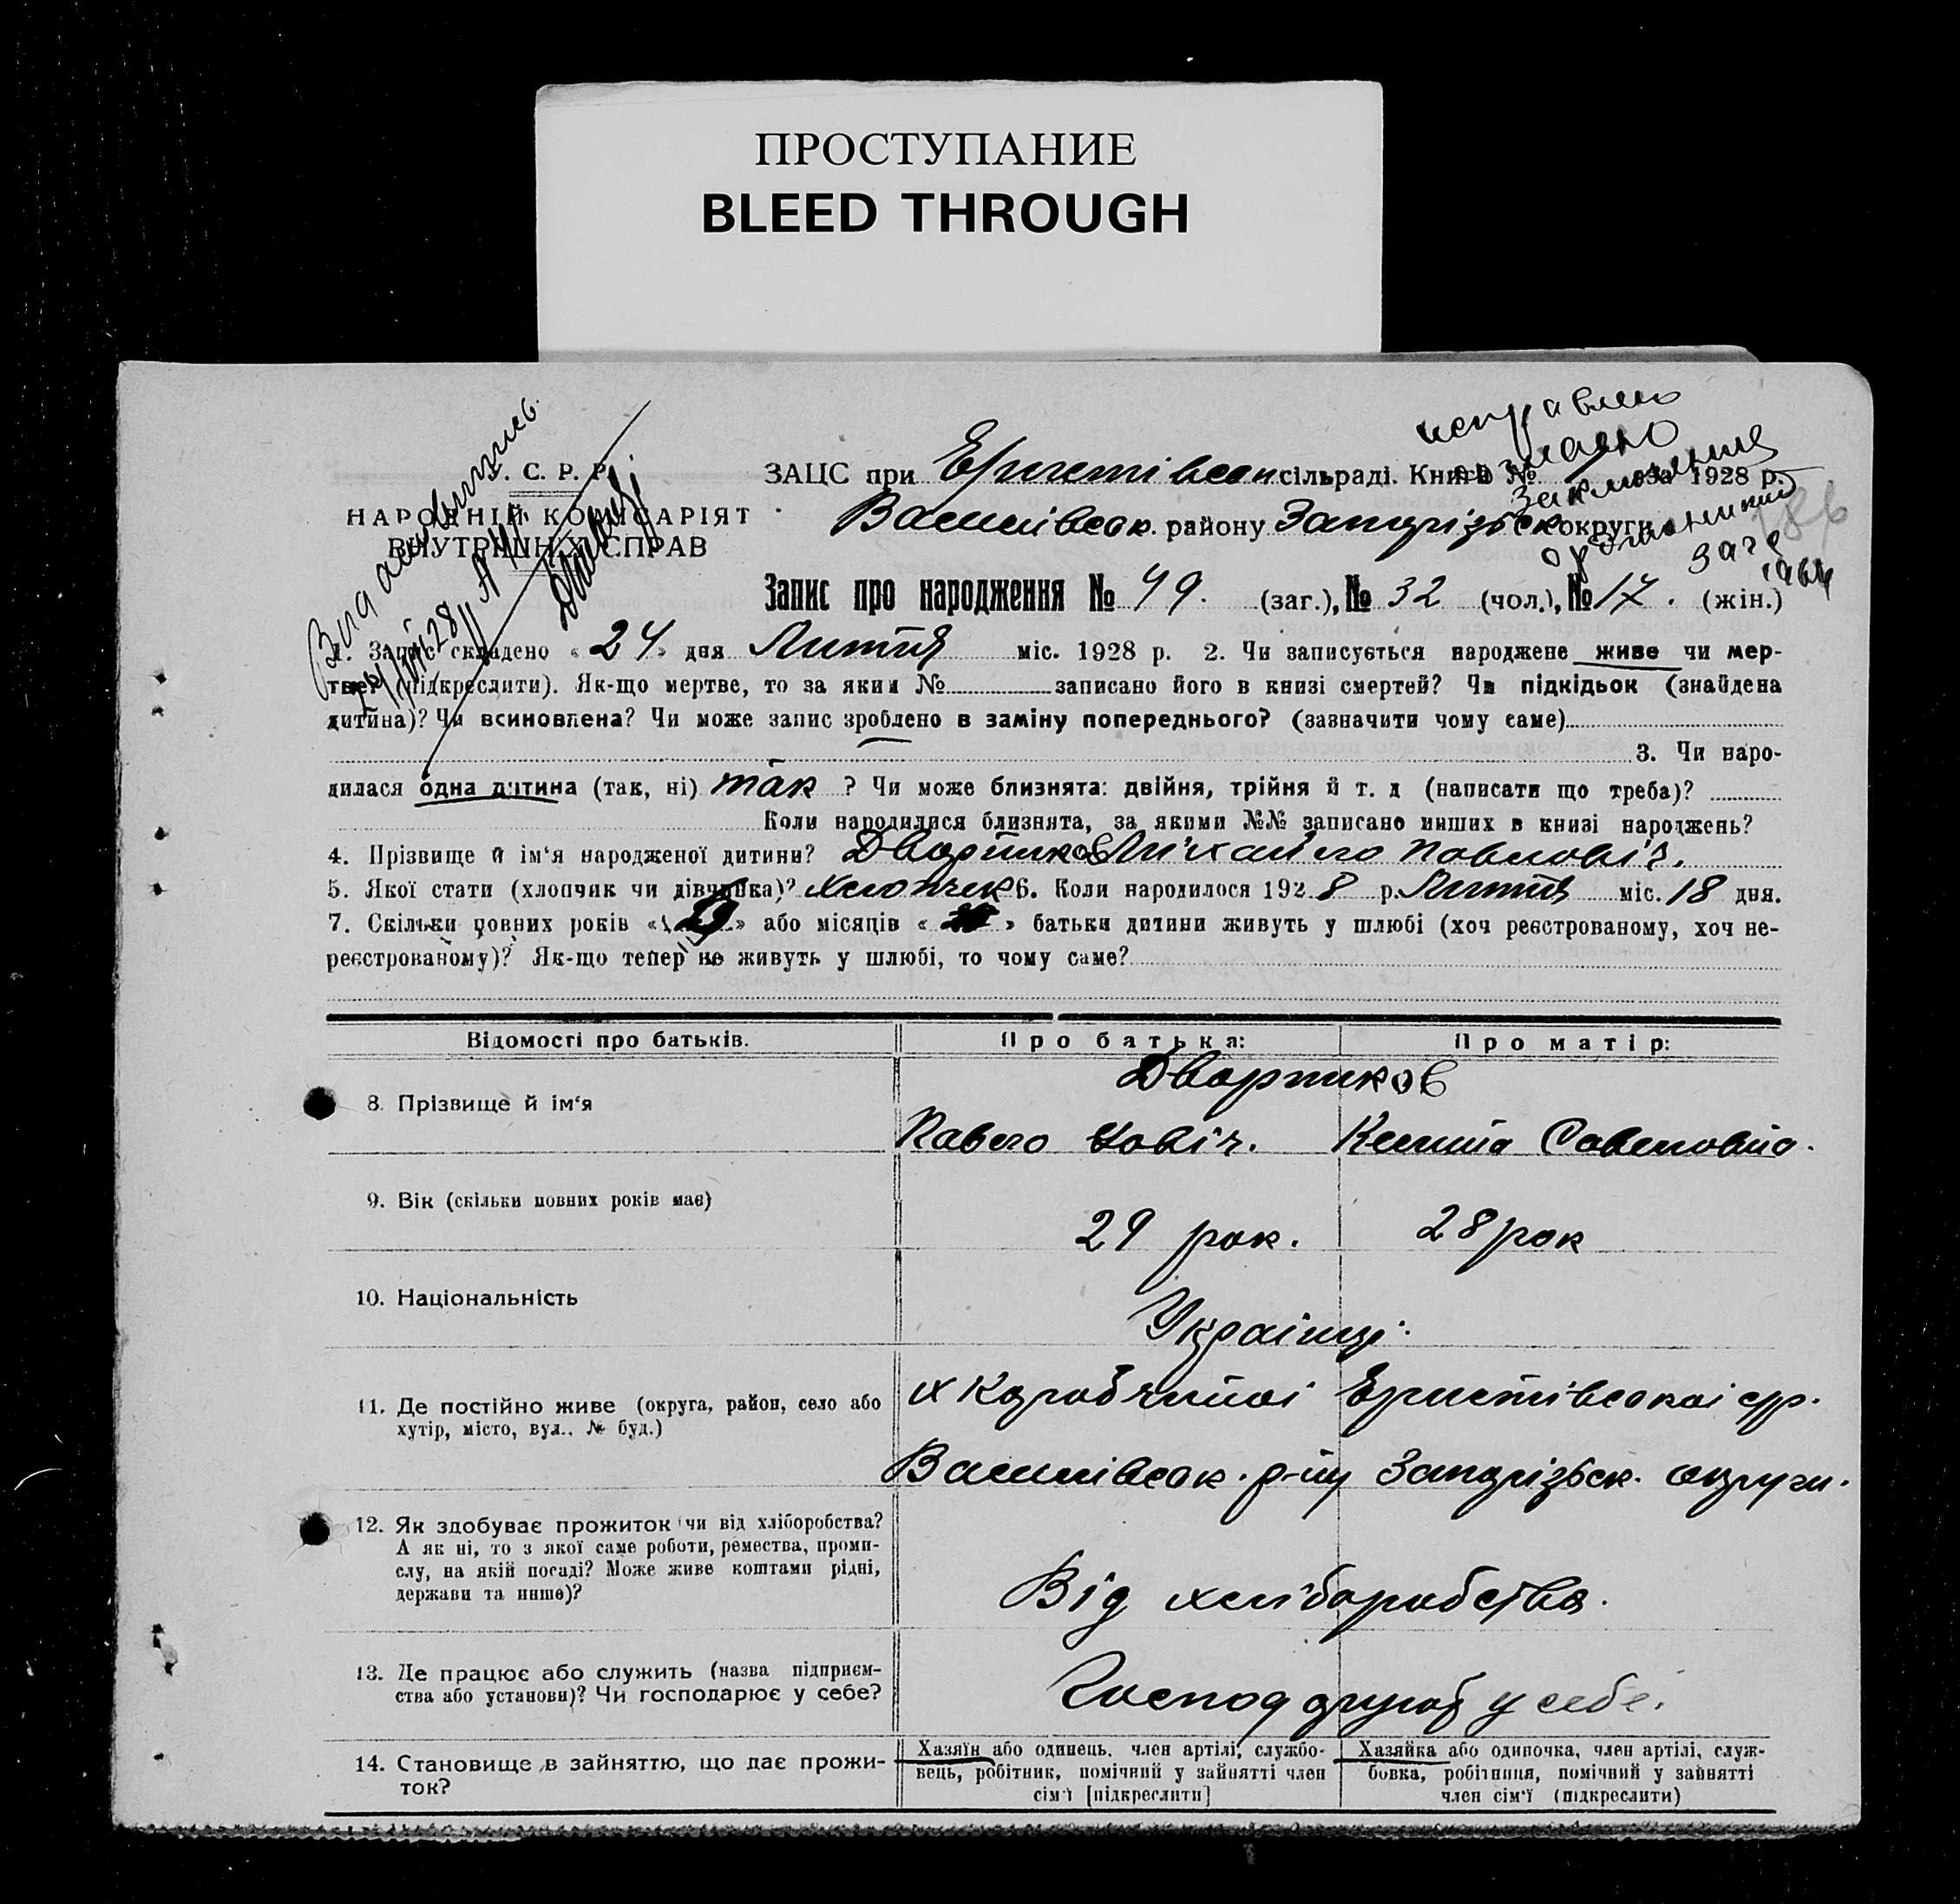 ПРОСТУПАНИЕ
BLEED THROUGH
С. Р. Р.
НАРОДНІЙ КОМІСАРІЯТ
ВНУТРІШНІХ СПРАВ
исправлено
ЗАЦС при сільраді. Книга № за 1928 р.
Василівськ. району Запорізськ округи
Запис про народження № 49. (заг.), № 32 (чол.), № 17. (жін.)
1. Запис складено «24» дня Лютня міс. 1928 р. 2. Чи записується народжене живе чи мер-
тве? (підкреслити). Як-що мертве, то за яким № записано його в книзі смертей? Чи підкідьок (знайдена
дитина)? Чи всиновлена? Чи може запис зроблено в заміну попереднього? (зазначити чому саме)
3. Чи наро-
дилася одна дитина (так, ні) так ? Чи може близнята: двійня, трійня й т. д (написати що треба)?
Коли народилися близнята, за якими №№ записано инших в книзі народжень?
4. Прізвище й ім‘я народженої дитини? Дворніков Міхайло Павловіч.
5. Якої стати (хлопчик чи дівчинка)? Хлопчик 6. Коли народилося 1928 р. Лютня міс. 18 дня.
7. Скільки повних років « » або місяців « » батьки дитини живуть у шлюбі (хоч реєстрованому, хоч не-
реєстрованому)? Як-що тепер не живуть у шлюбі, то чому саме?
Відомості про батьків. Про батька: Про матір:
Дворников
8. Прізвище й ім‘я
Павло Ксенія Савеловна.
9. Вік (скільки повних років має)
29 рок. 28 рок
10. Національність
Українці.
11. Де постійно живе (округа, район, село або
хутір, місто, вул.. № буд.)
Василівськ. р-ну Запорізьк. округи.
12. Як здобуває прожиток чи від хліборобства?
А як ні, то з якої саме роботи, ремества, проми-
слу, на якій посаді? Може живе коштами рідні,
держави та инше)?
Від хліборобства.
13. Де працює або служить (назва підприєм-
ства або установи)? Чи господарює у себе?
у себе.
14. Становище в зайняттю, що дає прожи-
ток?
Хазяїн або одинець. член артілі, службо-
вець, робітник, помічний у зайнятті член
сім‘ї [підкреслити]
Хазяйка або одиночка, член артілі, служ-
бовка, робітниця, помічний у зайнятті
член сім‘ї (підкреслити)